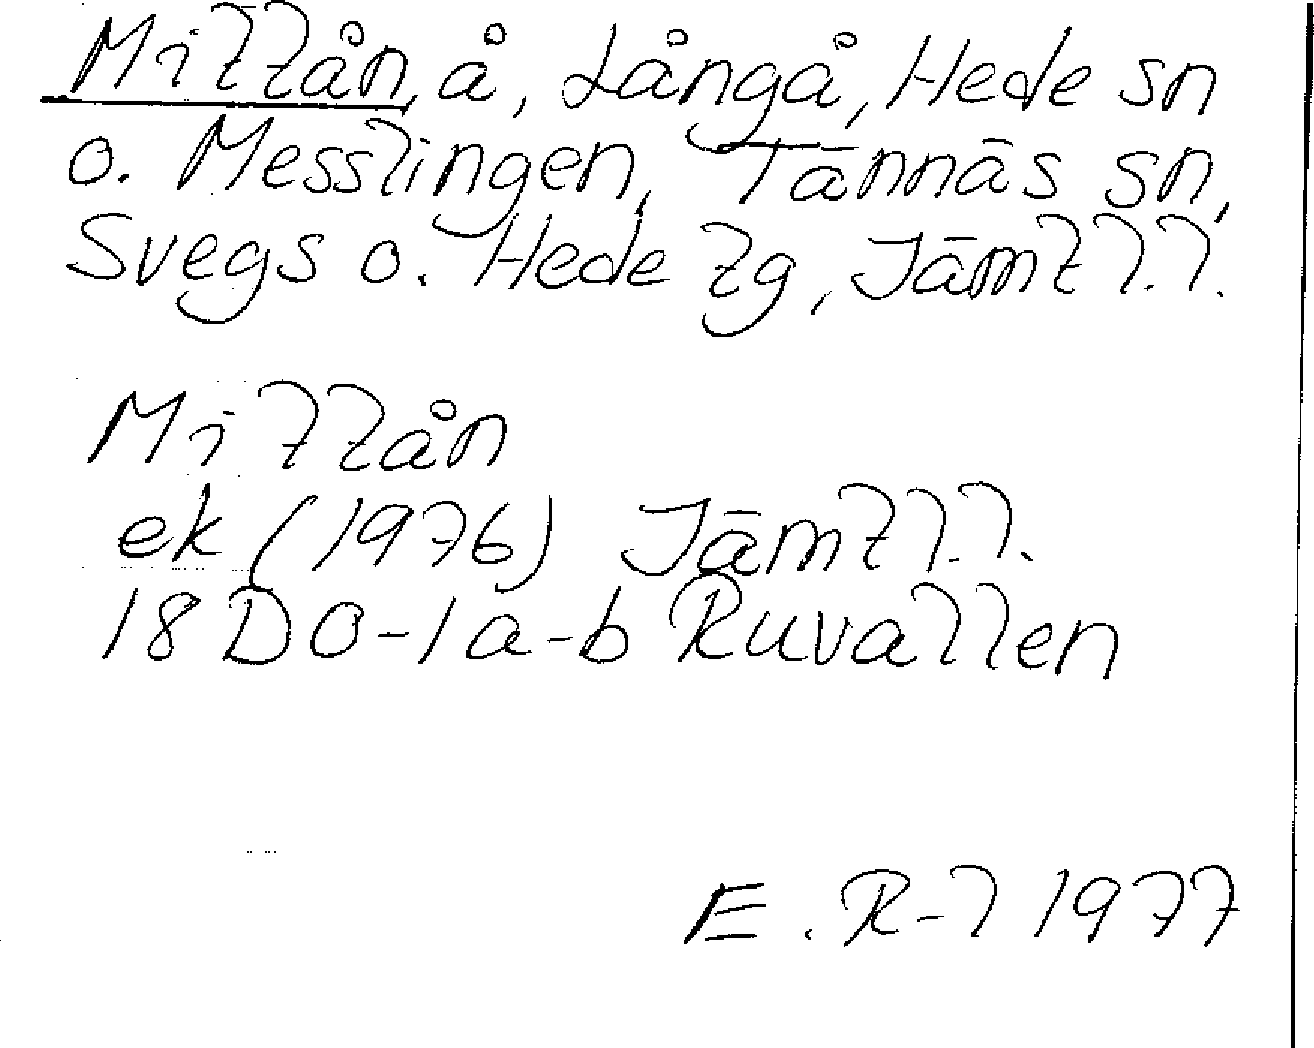 Mittån, å, Långå, Hede sn
o. Messlingen, Tännäs sn,
Svegs o. Hede tg, Jämtl.l.
Mittån
ek (1976) Jämtl.l.
18D 0-1a-b Ruvallen
E. R-l 1977